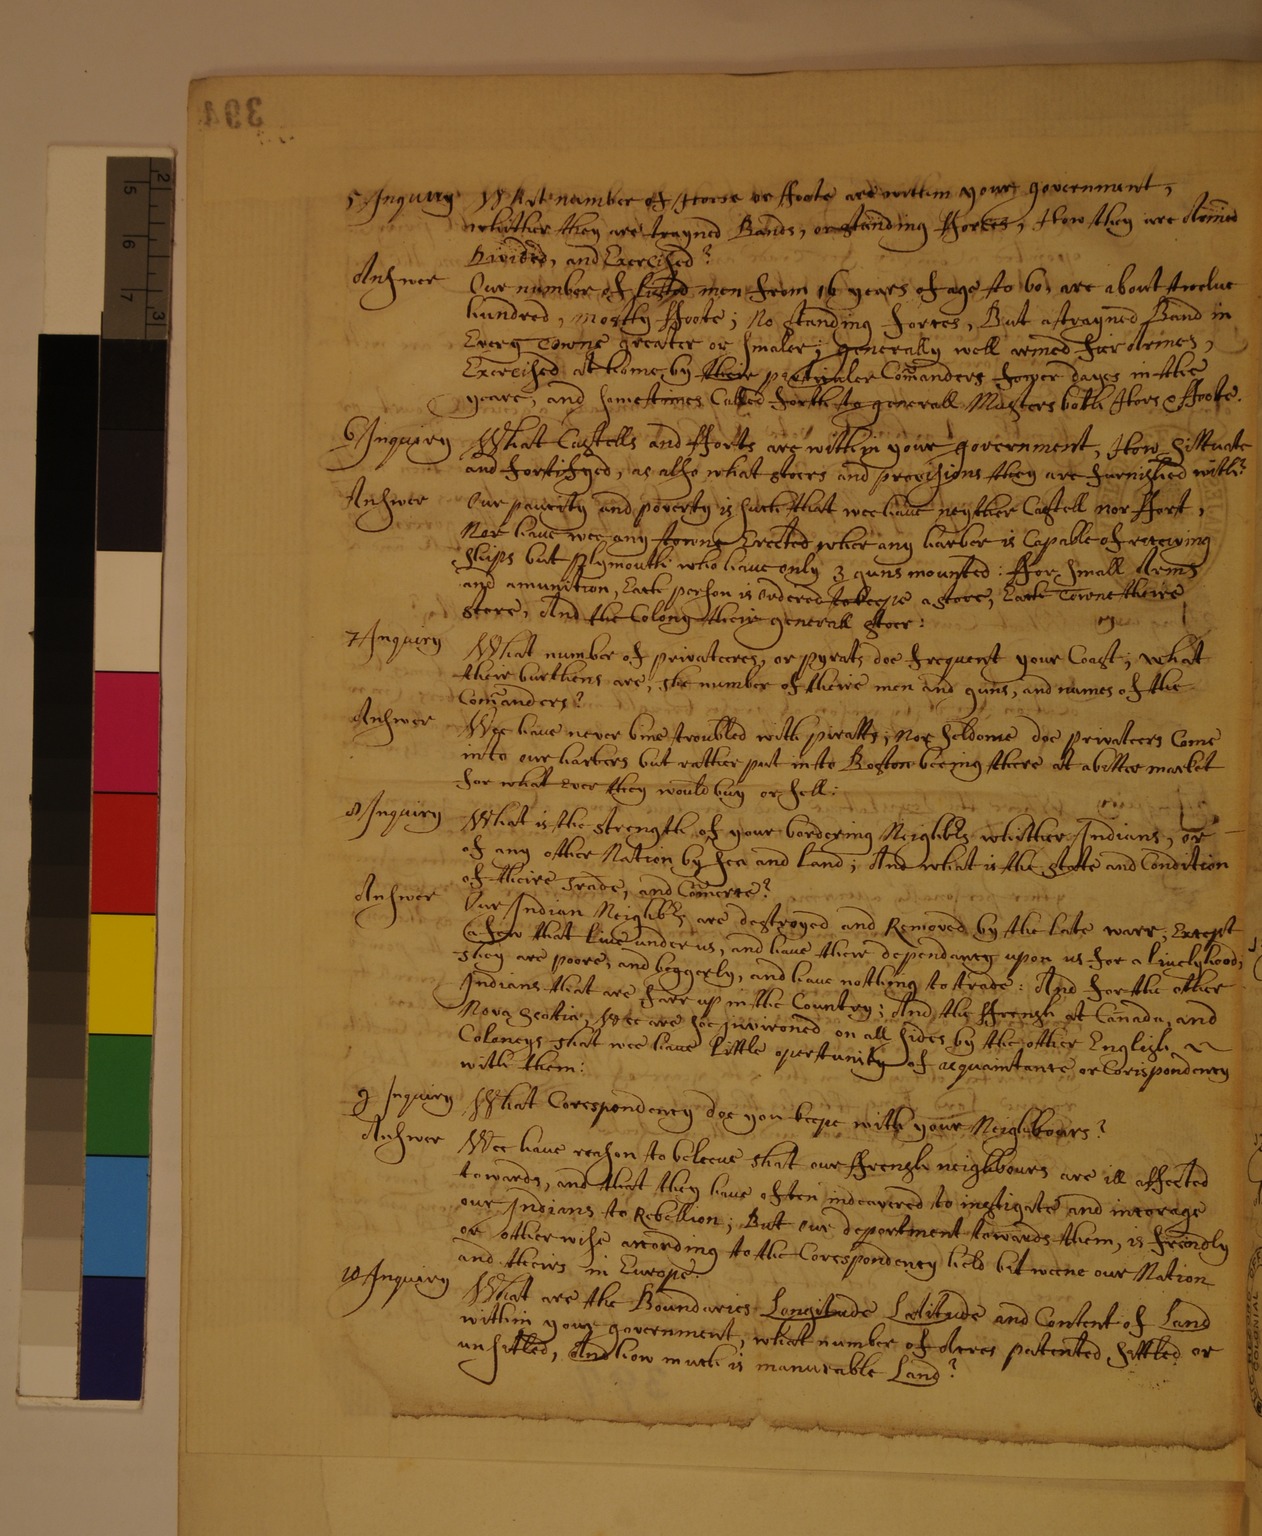 5 Inquiry What number of Horse or ffoote are within your government,
whither they are trayned Bands, or standing fforces, How they are Armed
Divided, and Exercised?
Answer Our number of Listed men from 16 years of age to 60, are about twelve
hundred, mostly ffoote; No standing forces, But a trayned Band in
Every Towne greater or smaler; generally well armed fier Armes,
Exercised at home by there particuler Comanders fower dayes in the
yeare, and sometimes Called forth to generall Musters both Hors & ffoote.
6 Inquiry What Castells and fforts are within your government, How Sittuate
and fortifyed, as also what stoers and provisions they are furnished with?
Answer Our paucity and poverty is such that wee have neyther Castell nor ffort,
Nor have wee any towne Erected wher any harber is Capable of receiving
Ships but Plymouth who have only 3 guns mounted: ffor Small Arms
and amunition, Each person is ordered to keepe a store, Each Towne theire
store, And the Colony their generall stoer:
7 Inquiry What number of privateeres, or pyrats doe frequent your Coast; what
their burthens are, the number of theire men and guns, and names of the
Comanders?
Answer Wee have never bine troubled with piratts; Nor seldome doe privateers Come
into our harbers but rather put into Boston beeing there at a better market
for what ever they would buy or sell:
8 Inquiry What is the strength of your bordering Neighbrs whither Indians, or
of any other Nation by sea and land; And what is the state and Condition
of theire Trade, and Comerce?
Answer Our Indian Neighbrs are destroyed and Removed by the late warr, Except
a few that live under us, and have their dependancy upon us for a livelyhood,
They are poore, and beggerly, and have nothing to trade: And for the other
Indians that are farr up in the Country; And the ffrensh at Canada, and
Nova Scotia, Wee are soe invironed on all sides by the other English
Coloneys that wee have little opertunity of acquaintance or Corispondency
with them:
9 Inquiry What Corespondency doe you keepe with your Neighbours?
Answer Wee have reason to beleeve that our ffrensh neighbours are ill affected
towards, and that they have often indeavered to instigate and incorage
our Indians to Rebellion; But our deportment towards them, is frendly
or otherwise according to the Corespondency held bitweene our Nation
and theirs in Europe.
10 Inquiry What are the Boundaries Longitude Latitude and Content of Land
within your government, what number of Acres patented, settled or
unsetled, And how much is manurable Land?